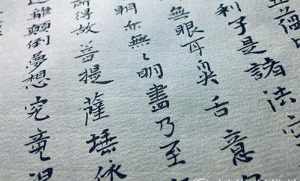 蘊
利子是諸法空
無眼耳鼻舌意
明亦無〻明盡乃至
得故菩提薩埵依
離顛倒夢想究竟涅